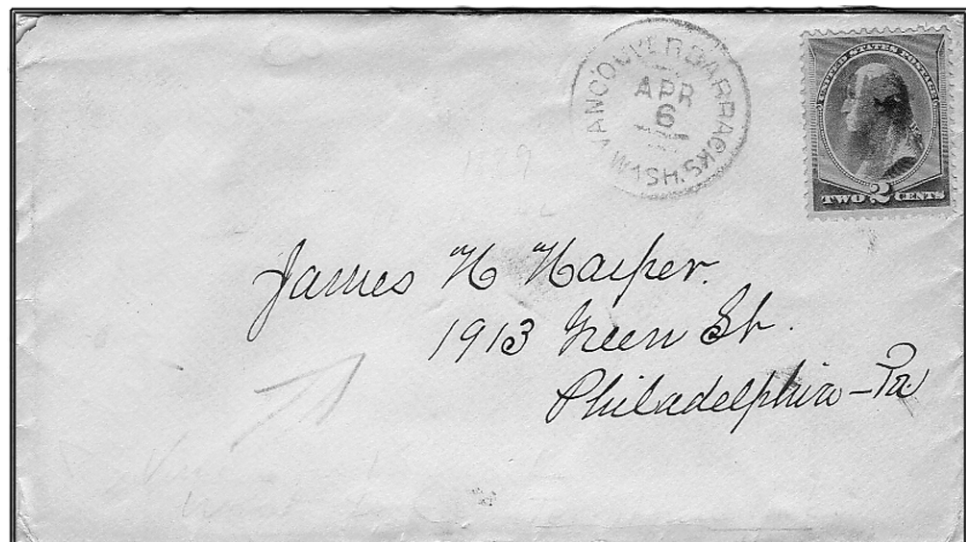 VANCOUVER BARRACKS
APR
6
WASH.
UNITED STATES POSTAGE
TWO 2 CENTS
James H Harper.
1913 Green St.
Philadelphia - Pa